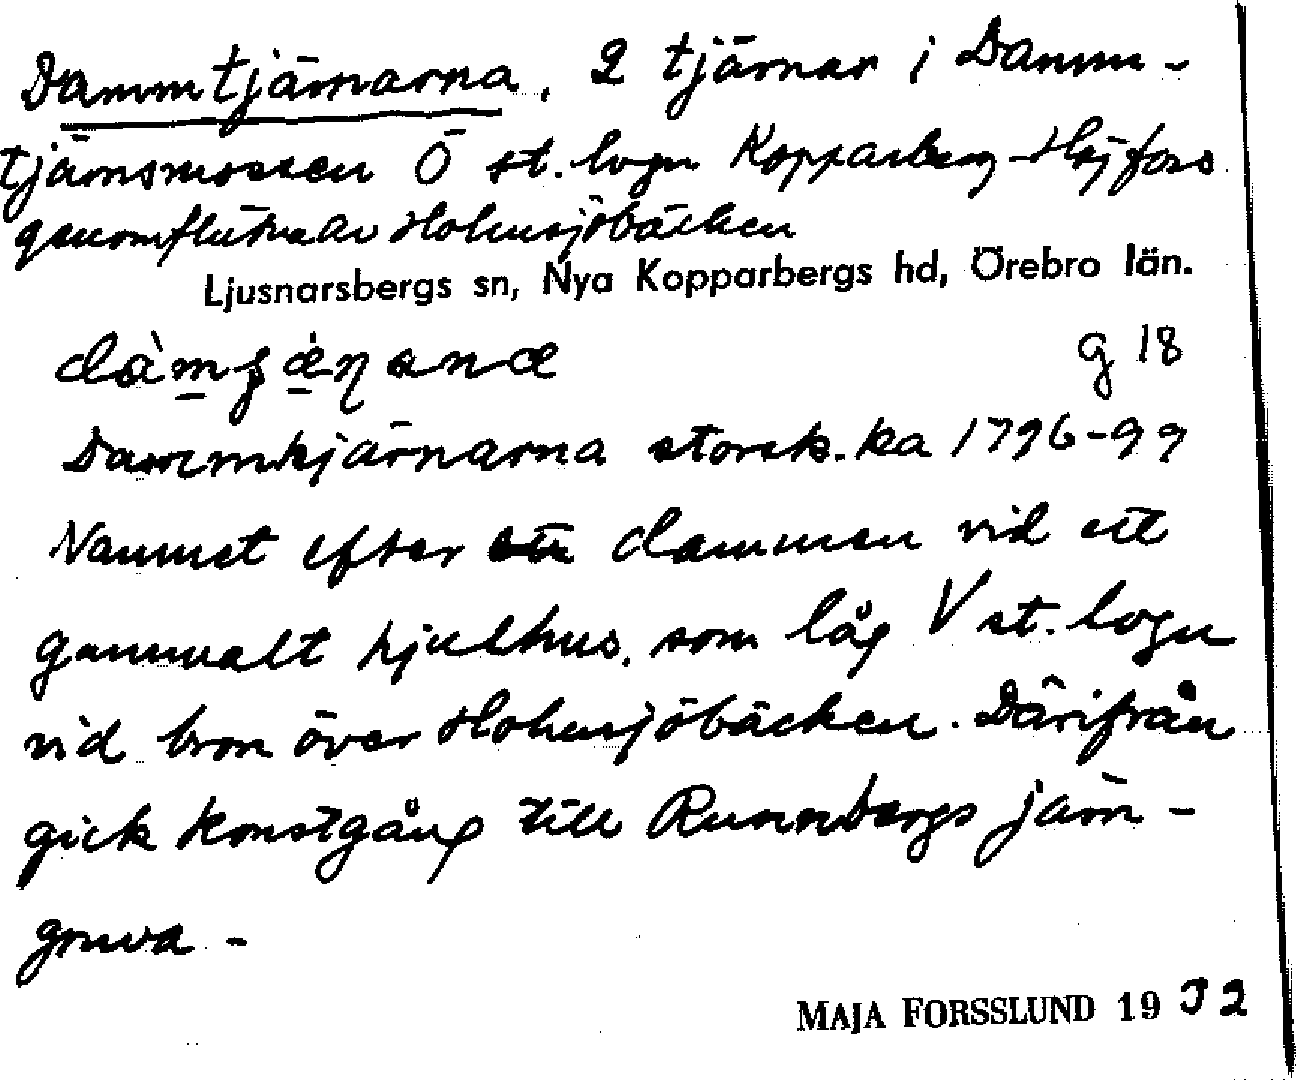 Dammtjärnarna, 2 tjärnar i Damm-
tjärnsmossen Ö st. lvgn Kopparberg-Högfors
genomflutna av Holmsjöbäcken
Ljusnarsbergs sn, Nya Kopparbergs hd, Örebro län.
g 18
Dammkjärnarna storsk.ka 1796-99
Namnet efter dammen vid ett
gammalt hjulhus, som låg V st. lvgn
vid bron över Holmsjöbäcken. Därifrån
gick konstgång till Runnbergs järn-
gruva -
MAJA FORSSLUND 19 32